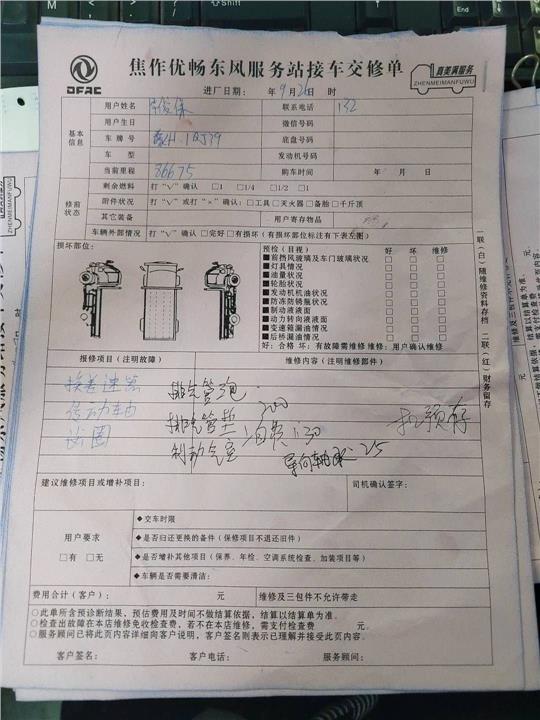 DFAC
焦作优畅东风服务站接车交修单
真美满服务
ZHENMEIMANFUWU
进厂日期： 年 9月 26日 时
基本信息
用户姓名
联系电话 132
用户生日
微信号码
车牌号
底盘号码
车型
发动机号码
当前里程 86675
购车时间 年 月 日
修前状态
剩余燃料 打“√”确认 □1 □1/4 □1/2 □1
附件状况 打“√”或打“×”确认：□工具 □灭火器 □备胎 □千斤顶
其它装备
用户寄存物品
车辆外部情况 打“√”确认 □完好 □有损坏（有损坏部位标注有下表左图）
损坏部位：
预检（目视） 好 坏 维修
■前挡风玻璃及车门玻璃状况 □ □ □
■灯具情况 □ □ □
■油量状况 □ □ □
■轮胎状况 □ □ □
■发动机机油状况 □ □ □
■防冻防锈瓶状况 □ □ □
■制动液液面 □ □ □
■动力转向液液面 □ □ □
■变速箱漏油情况 □ □ □
■后桥漏油情况 □ □ □
好：合格 坏：有故障需维修 维修：用户确认维修
一联（白）随维修资料存档 二联（红）财务留存
报修项目（注明故障）
维修内容（注明维修部件）
换差速器
排气管泡
传动轴
排气管垫 200
扣预存
油圈
制动气室 自费130
导向轴承 25
建议维修项目或增补项目：
司机确认签字：
用户要求
□有 □无
◆交车时限
◆是否归还更换的备件（保修项目不退还旧件）
◆是否增补其他项目（保养、年检、空调系统检查、加装项目等）
◆车辆是否需要清洁：
费用合计（客户）： 元
维修及三包件不允许带走
○此单所含预诊断结果，预估费用及时间不做结算依据，结算以结算单为准。
○检查出故障在本店维修免收检查费，若不在本店维修，需支付检查费 元。
○服务顾问已将此页内容详细向客户说明，客户签名则表示已理解并接受此页内容。
客户签名：
客户电话：
服务顾问：